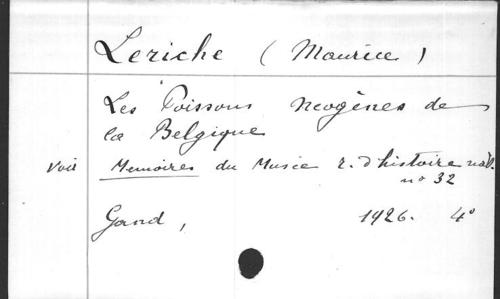 Leriche (Maurice)
Les Poissons Néogènes de
la Belgique
voir Memoires du Musée r. d'histoire nat.
no 32
Gand, 1926. 4°